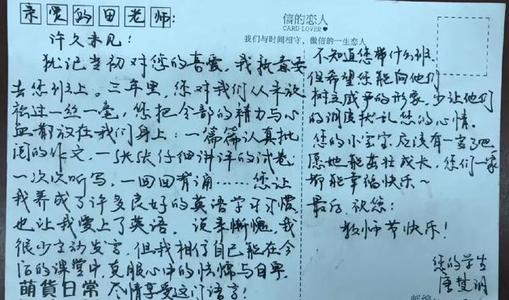 亲爱的田老师:
许久未见!
犹记当初对您的喜爱,我执着要
去您班上。三年里,您对我们从来没
松过一丝一毫,您把全部的精力与心
血都放在我们身上:一篇篇认真批
阅的作文,一张张仔细讲评的试卷
一次次听写,一回回背诵……您让
我养成了许多良好的英语学习习惯
也让我爱上了英语。说来惭愧,我
很少主动发言,但我相信自己能在今
后的课堂中克服心中的恐惧与自卑
尽情享受这门语言!
萌货日常
信的恋人
CARD LOVER
我们与时间相守,做信的一生恋人
不知道您带什么班
但希望您能向他们
树立威严的形象,少让他们
的调皮扰乱您的心情。
您的小宝宝应该有一岁了吧
愿她能茁壮成长,您们一家
都能幸福快乐~
最后,祝您:
教师节快乐!
您的学生